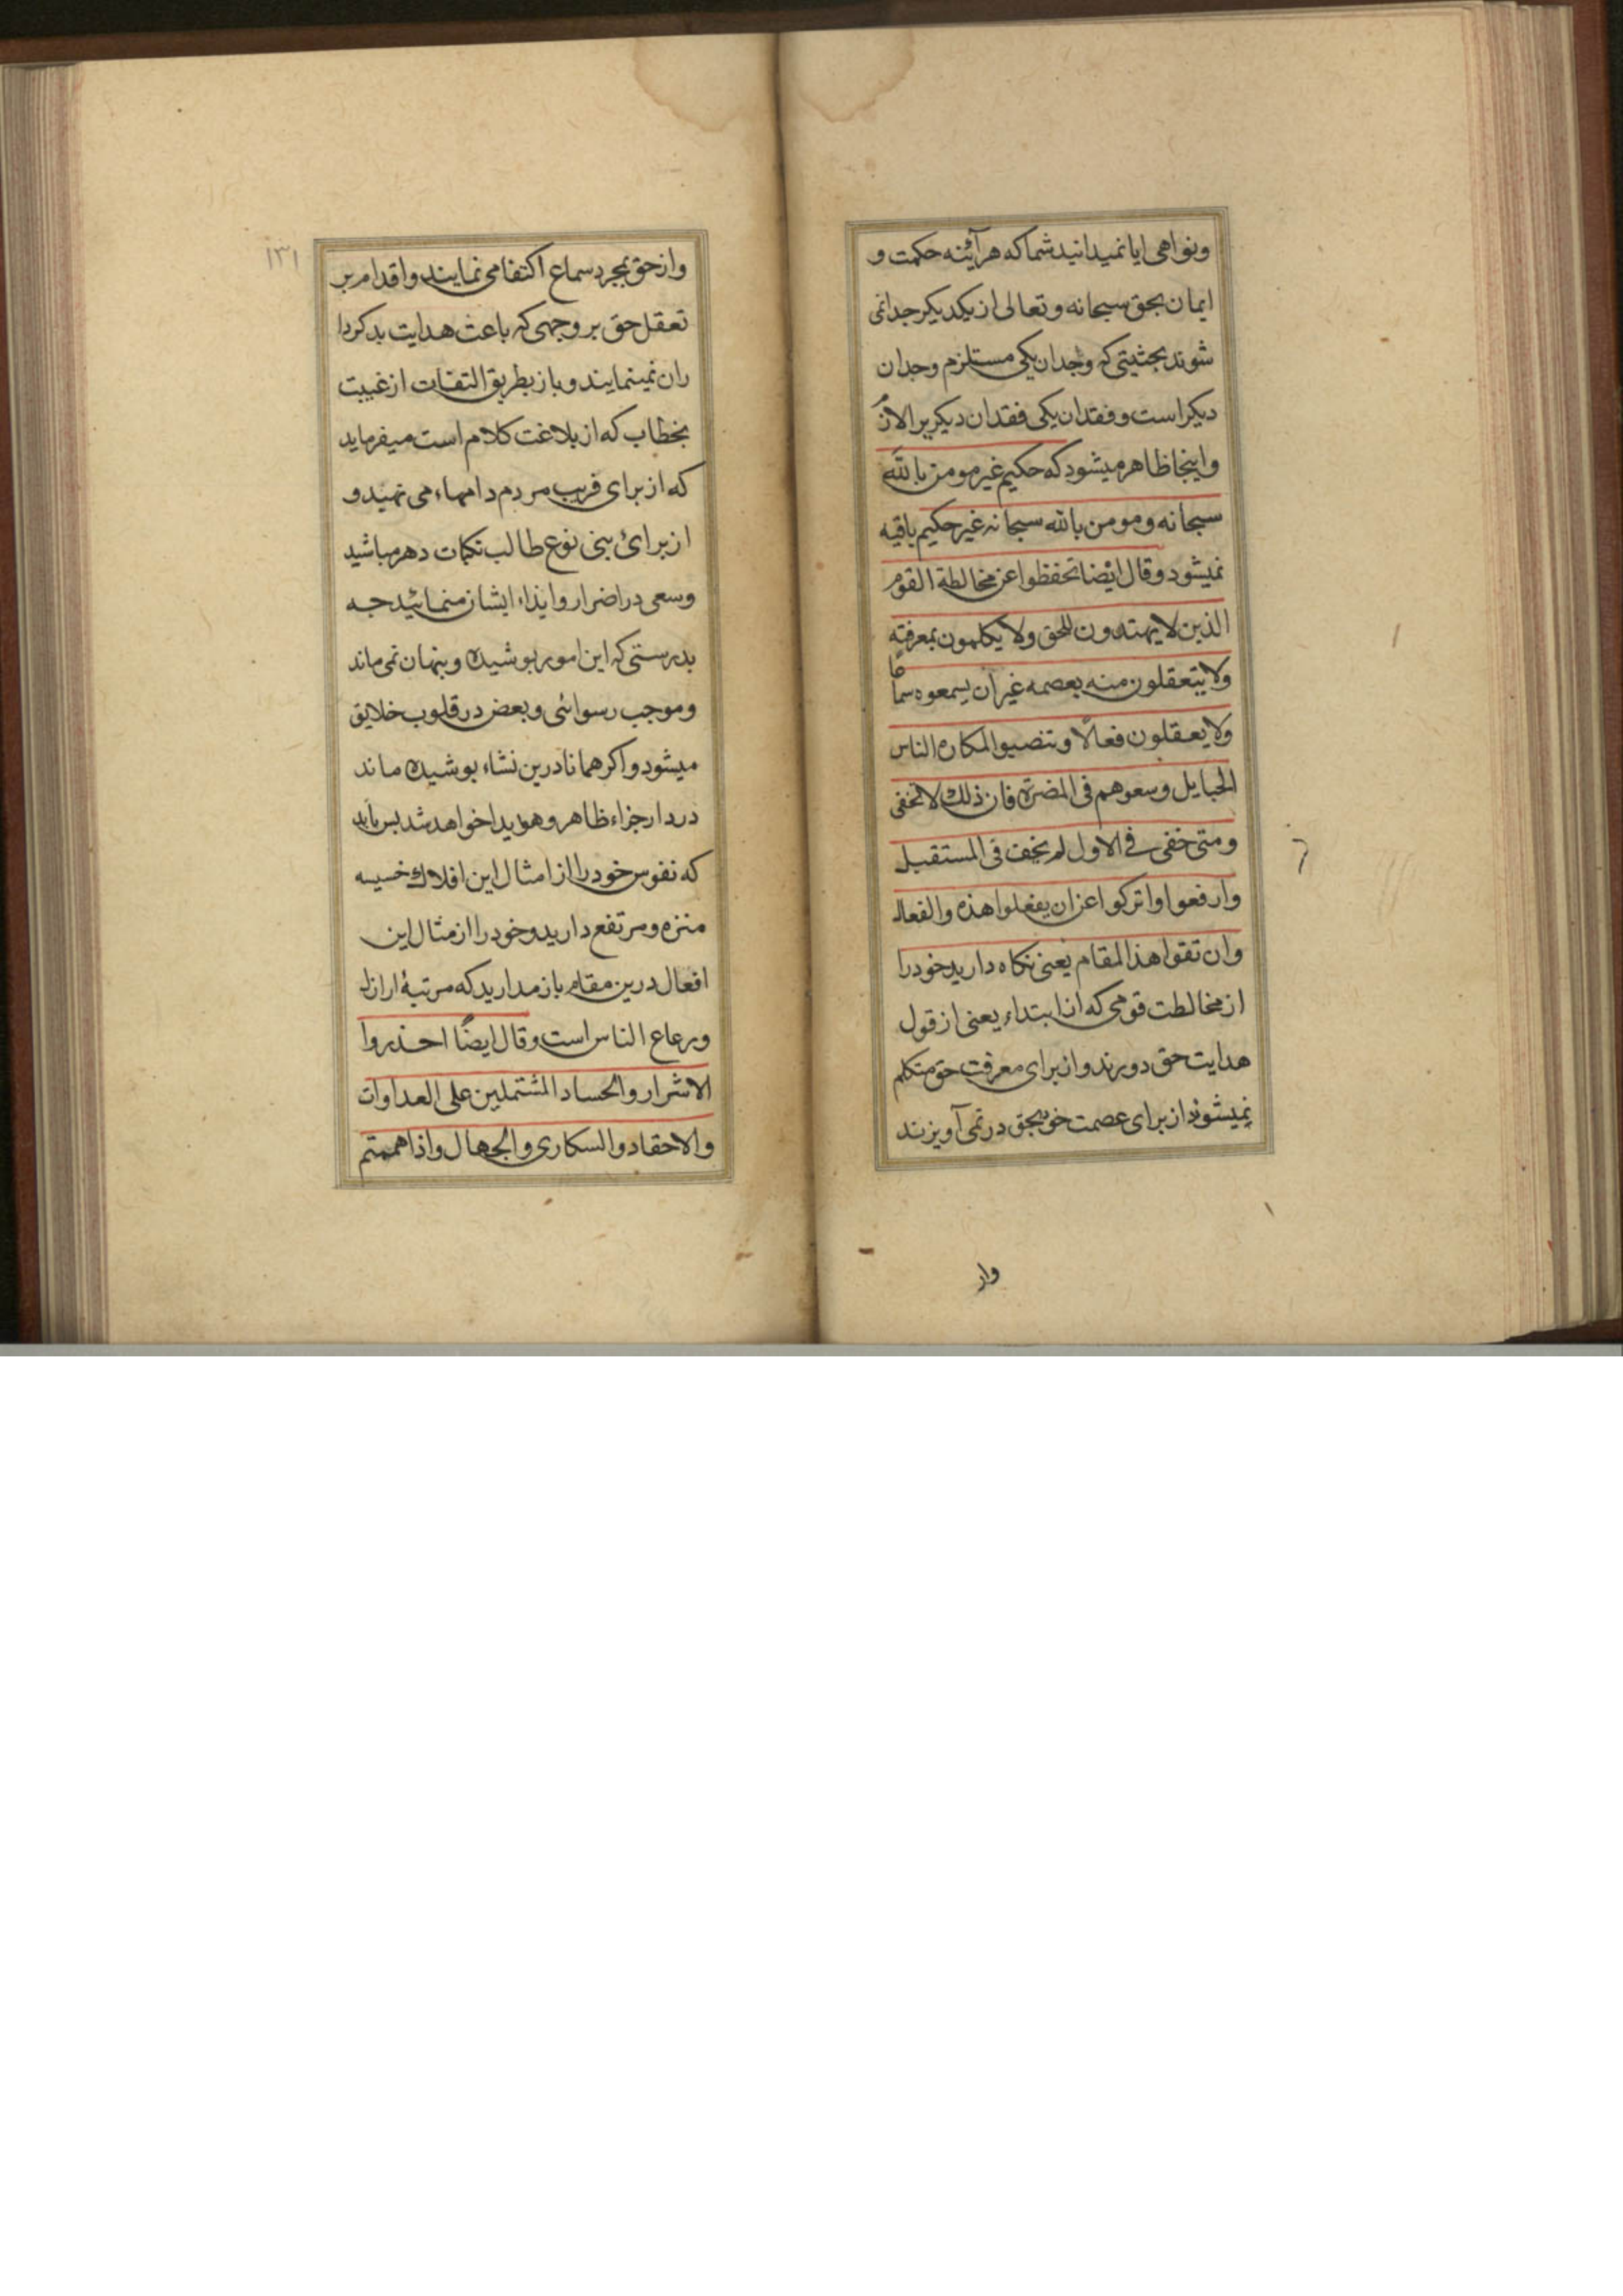 ونواهی ایا نمیدانید شما که هر آینه حکمت و
ایمان بحق سبحانه و تعالی از یکدیکر جدا نمی
شوند بحیثیتی که وجدان یکی مستلزم وجدان
دیکر است و فقدان یکی فقدان دیکر بر الان
واینجا ظاهر میشود که حکیم غیر مومن بالله
سبحانه و مومن بالله سبحانه غیر حکیم یافته
نمیشود وقال ایضا تحفظوا عن مخالطة القوم
الذین لا یهتدون للحق ولا یکلمون بمعرفته
ولا یتعقلون منه بعصمه غیر ان یسمعوه سماعا
ولا یعقلون فعالا وتنصبوا لمکاره الناس
الحبایل وسعوهم فی المضرة فان ذلك لا تخفی
ومتی خفی فی الاول لم یخف فی المستقبل
وارفعوا واترکوا عن ان یفعلوا هذه والفعال
وان تقوا هذا المقام یعنی نکاه دارید خود را
از مخالطت قومی که از ابتداء یعنی از قول
هدایت حق دورند و از برای معرفت حق متکلم
نمیشوند از برای عصمت خود بحق در نمی آویزند
واز
۱۳۱
واز حق بمجرد سماع اکتفا می نمایند و اقدام بر
تعقل حق بر وجهی که باعث هدایت بد کردا
ران نمینمایند و باز بطریق التفات از غیبت
بخطاب که از بلاغت کلام است میفرماید
که از برای فریب مردم دامهاء می نهید و
از برائ بنی نوع طالب نکبات دهر مباشید
وسعی در اضرار و ایذاء ایشان منمائید جه
بدرستی که این امور بوشیده و بنهان نمی ماند
و موجب رسوائی و بعض در قلوب خلایق
میشود و اکر همانا درین نشاء بوشیده ماند
در دار جزاء ظاهر و هویدا خواهد شد بس باید
که نفوس خود را از امثال این افلاك خسیسه
منزه و مرتفع دارید و خود را از مثال این
افعال درین مقام باز مدارید که مرتبۀ اراذل
ورعاع الناس است وقال ایضًا احذروا
الاشرار والحساد المشتملین علی العداوات
والاحقاد والسکاری والجهال واذا هممتم